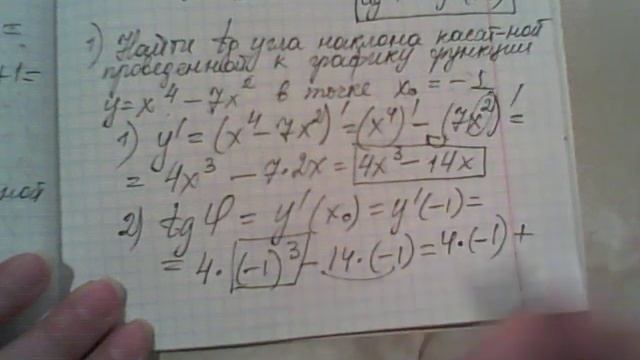 =
+1=
ной
1) Найти tg угла наклона касат-ной
проведенной к графику функции
y = x⁴ - 7x² в точке x₀ = -1
1) y' = (x⁴ - 7x²)' = (x⁴)' - (7x²)' =
= 4x³ - 7·2x = 4x³ - 14x
2) tg φ = y'(x₀) = y'(-1) =
= 4·(-1)³ - 14·(-1) = 4·(-1) +